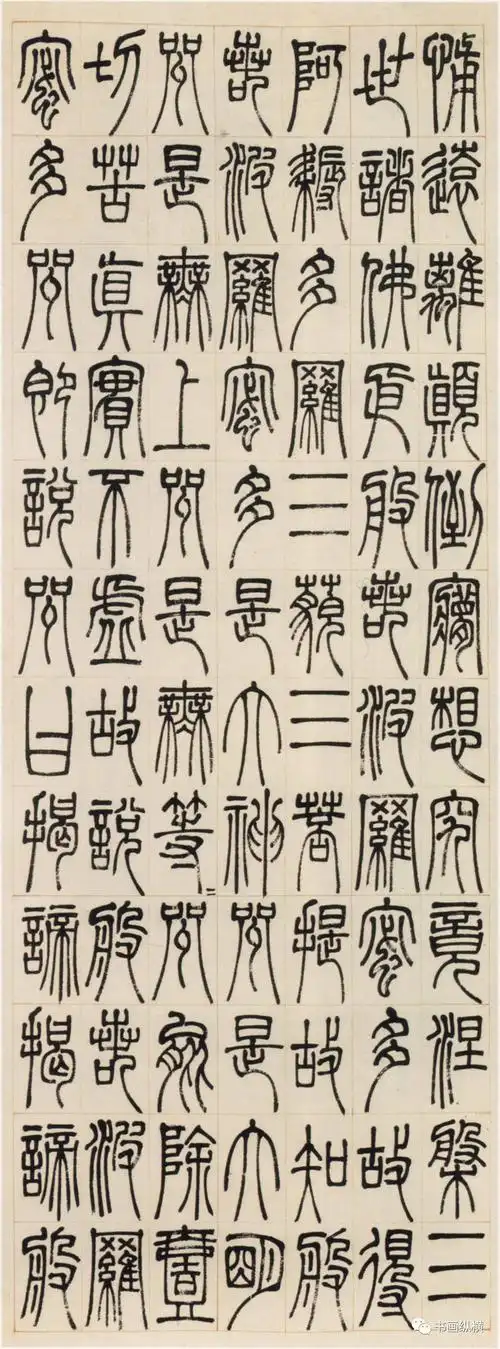 怖遠離顛倒夢想究竟涅槃三
世諸佛依般若波羅蜜多故得
阿耨多羅三藐三菩提故知般
若波羅蜜多是大神呪是大明
呪是無上呪是無等〻呪能除壹
切苦眞實不虛故說般若波羅
蜜多呪即說呪曰揭諦揭諦般
书画纵横